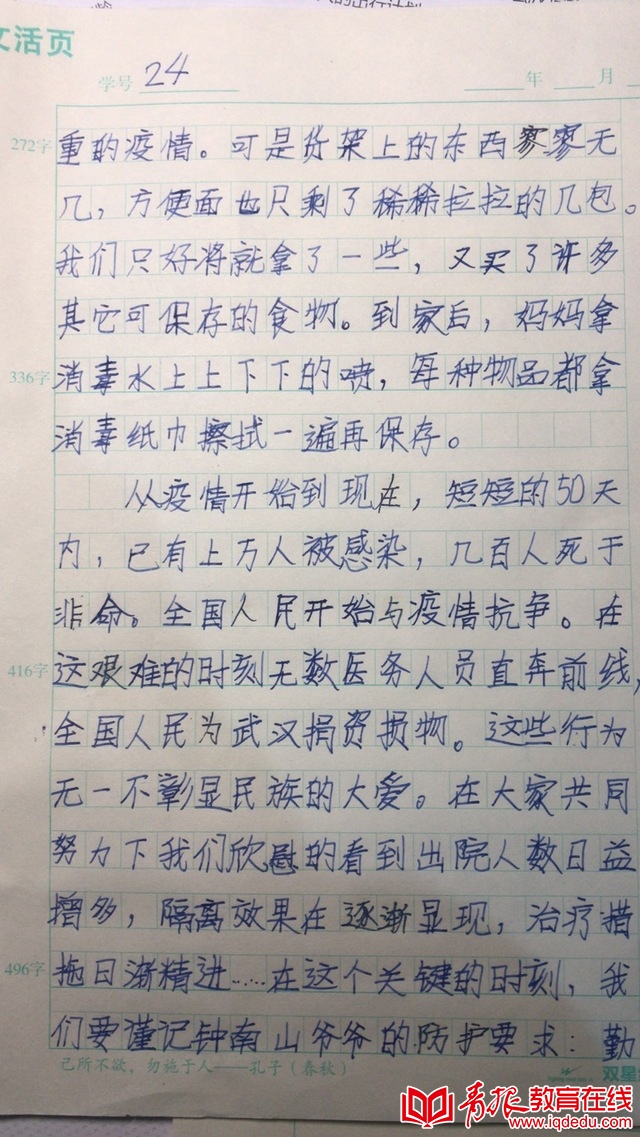 文活页
学号 24 年 月
272字 重的疫情。可是货架上的东西寥寥无
几，方便面也只剩了稀稀拉拉的几包。
我们只好将就拿了一些，又买了许多
其它可保存的食物。到家后，妈妈拿
336字 消毒水上上下下的喷，每种物品都拿
消毒纸巾擦拭一遍再保存。
从疫情开始到现在，短短的50天
内，已有上万人被感染，几百人死于
非命。全国人民开始与疫情抗争。在
416字 这艰难的时刻无数医务人员直奔前线，
全国人民为武汉捐资损物。这些行为
无一不彰显民族的大爱。在大家共同
努力下我们欣慰的看到出院人数日益
增多，隔离效果在逐渐显现，治疗措
496字 施日渐精进……在这个关键的时刻，我
们要谨记钟南山爷爷的防护要求：勤
己所不欲，勿施于人——孔子（春秋）
双星
青报教育在线
www.iqdedu.com